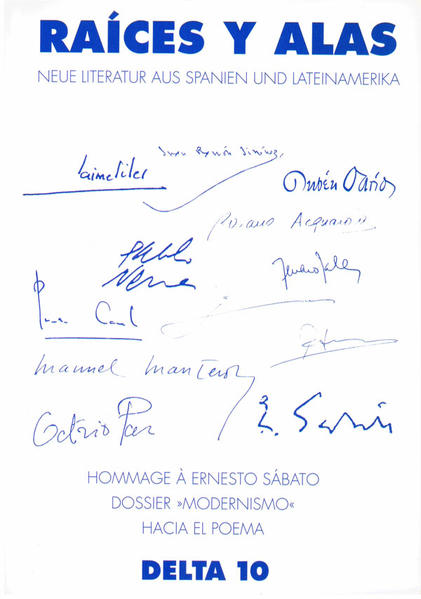 RAÍCES Y ALAS
NEUE LITERATUR AUS SPANIEN UND LATEINAMERIKA
Juan Ramón Jiménez
Jaime Siles
Rubén Darío
Rosana Acquaroni
Pablo
Neruda
Manuel Mantero
Octavio Paz
E. Sabato
HOMMAGE À ERNESTO SÁBATO
DOSSIER »MODERNISMO«
HACIA EL POEMA
DELTA 10